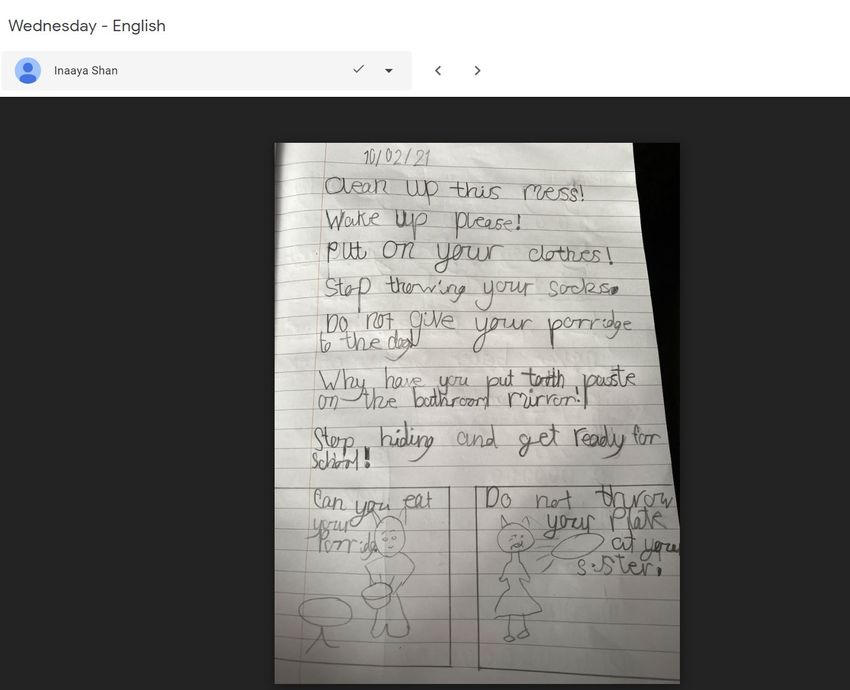 Wednesday - English
Inaaya Shan
10/02/21
Clean up this mess!
Wake up please!
put on your clothes!
Stop thorwing your socks.
Do not give your porridge
to the dog
Why have you put tooth paste
on the bathroom mirror!
Stop hiding and get ready for
School!
Can you eat
your
Porridge
Do not throw
your Plate
at your
sister.